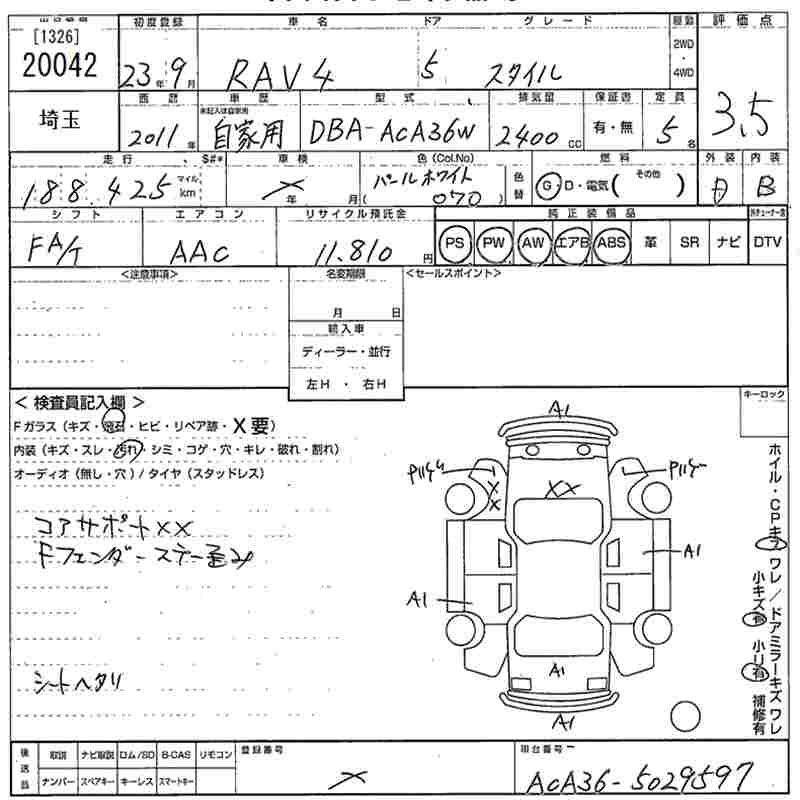 [1326]
20042
初度登録
車名
ドア
グレード
駆動
評価点
23年9月
RAV4
5
スタイル
2WD
・
4WD
3.5
埼玉
西暦
車歴
型式
排気量
保証書
定員
2011年
未記入は自家用
自家用
DBA-ACA36W
2400cc
有・無
5名
走行
S#*
車検
色(Col.No)
燃料
外装
内装
188,425
マイル
km
×
年
月
パールホワイト
070
色替
G・D・電気(その他)
B
シフト
エアコン
リサイクル預託金
純正装備品
FA/T
AAC
11,810円
PS
PW
AW
エアB
ABS
革
SR
ナビ
DTV
<注意事項>
名変期限
<セールスポイント>
月
日
輸入車
ディーラー・並行
左H・右H
<検査員記入欄>
キーロック
Fガラス(キズ・飛石・ヒビ・リペア跡・X要)
内装(キズ・スレ・汚れ・シミ・コゲ・穴・キレ・破れ・割れ)
オーディオ(無し・穴)/タイヤ(スタッドレス)
コアサポートXX
Fフェンダーステー歪み
シートヘタリ
A1
X
X
XX
A1
A1
A1
A1
ホイル・CPキズワレ/ドアミラーキズワレ
小キズ有
小リ有
補修有
後送品
取説
ナビ取説
ロム/SD
B-CAS
リモコン
ナンバー
スペアキー
キーレス
スマートキー
登録番号
×
車台番号
ACA36-5029597